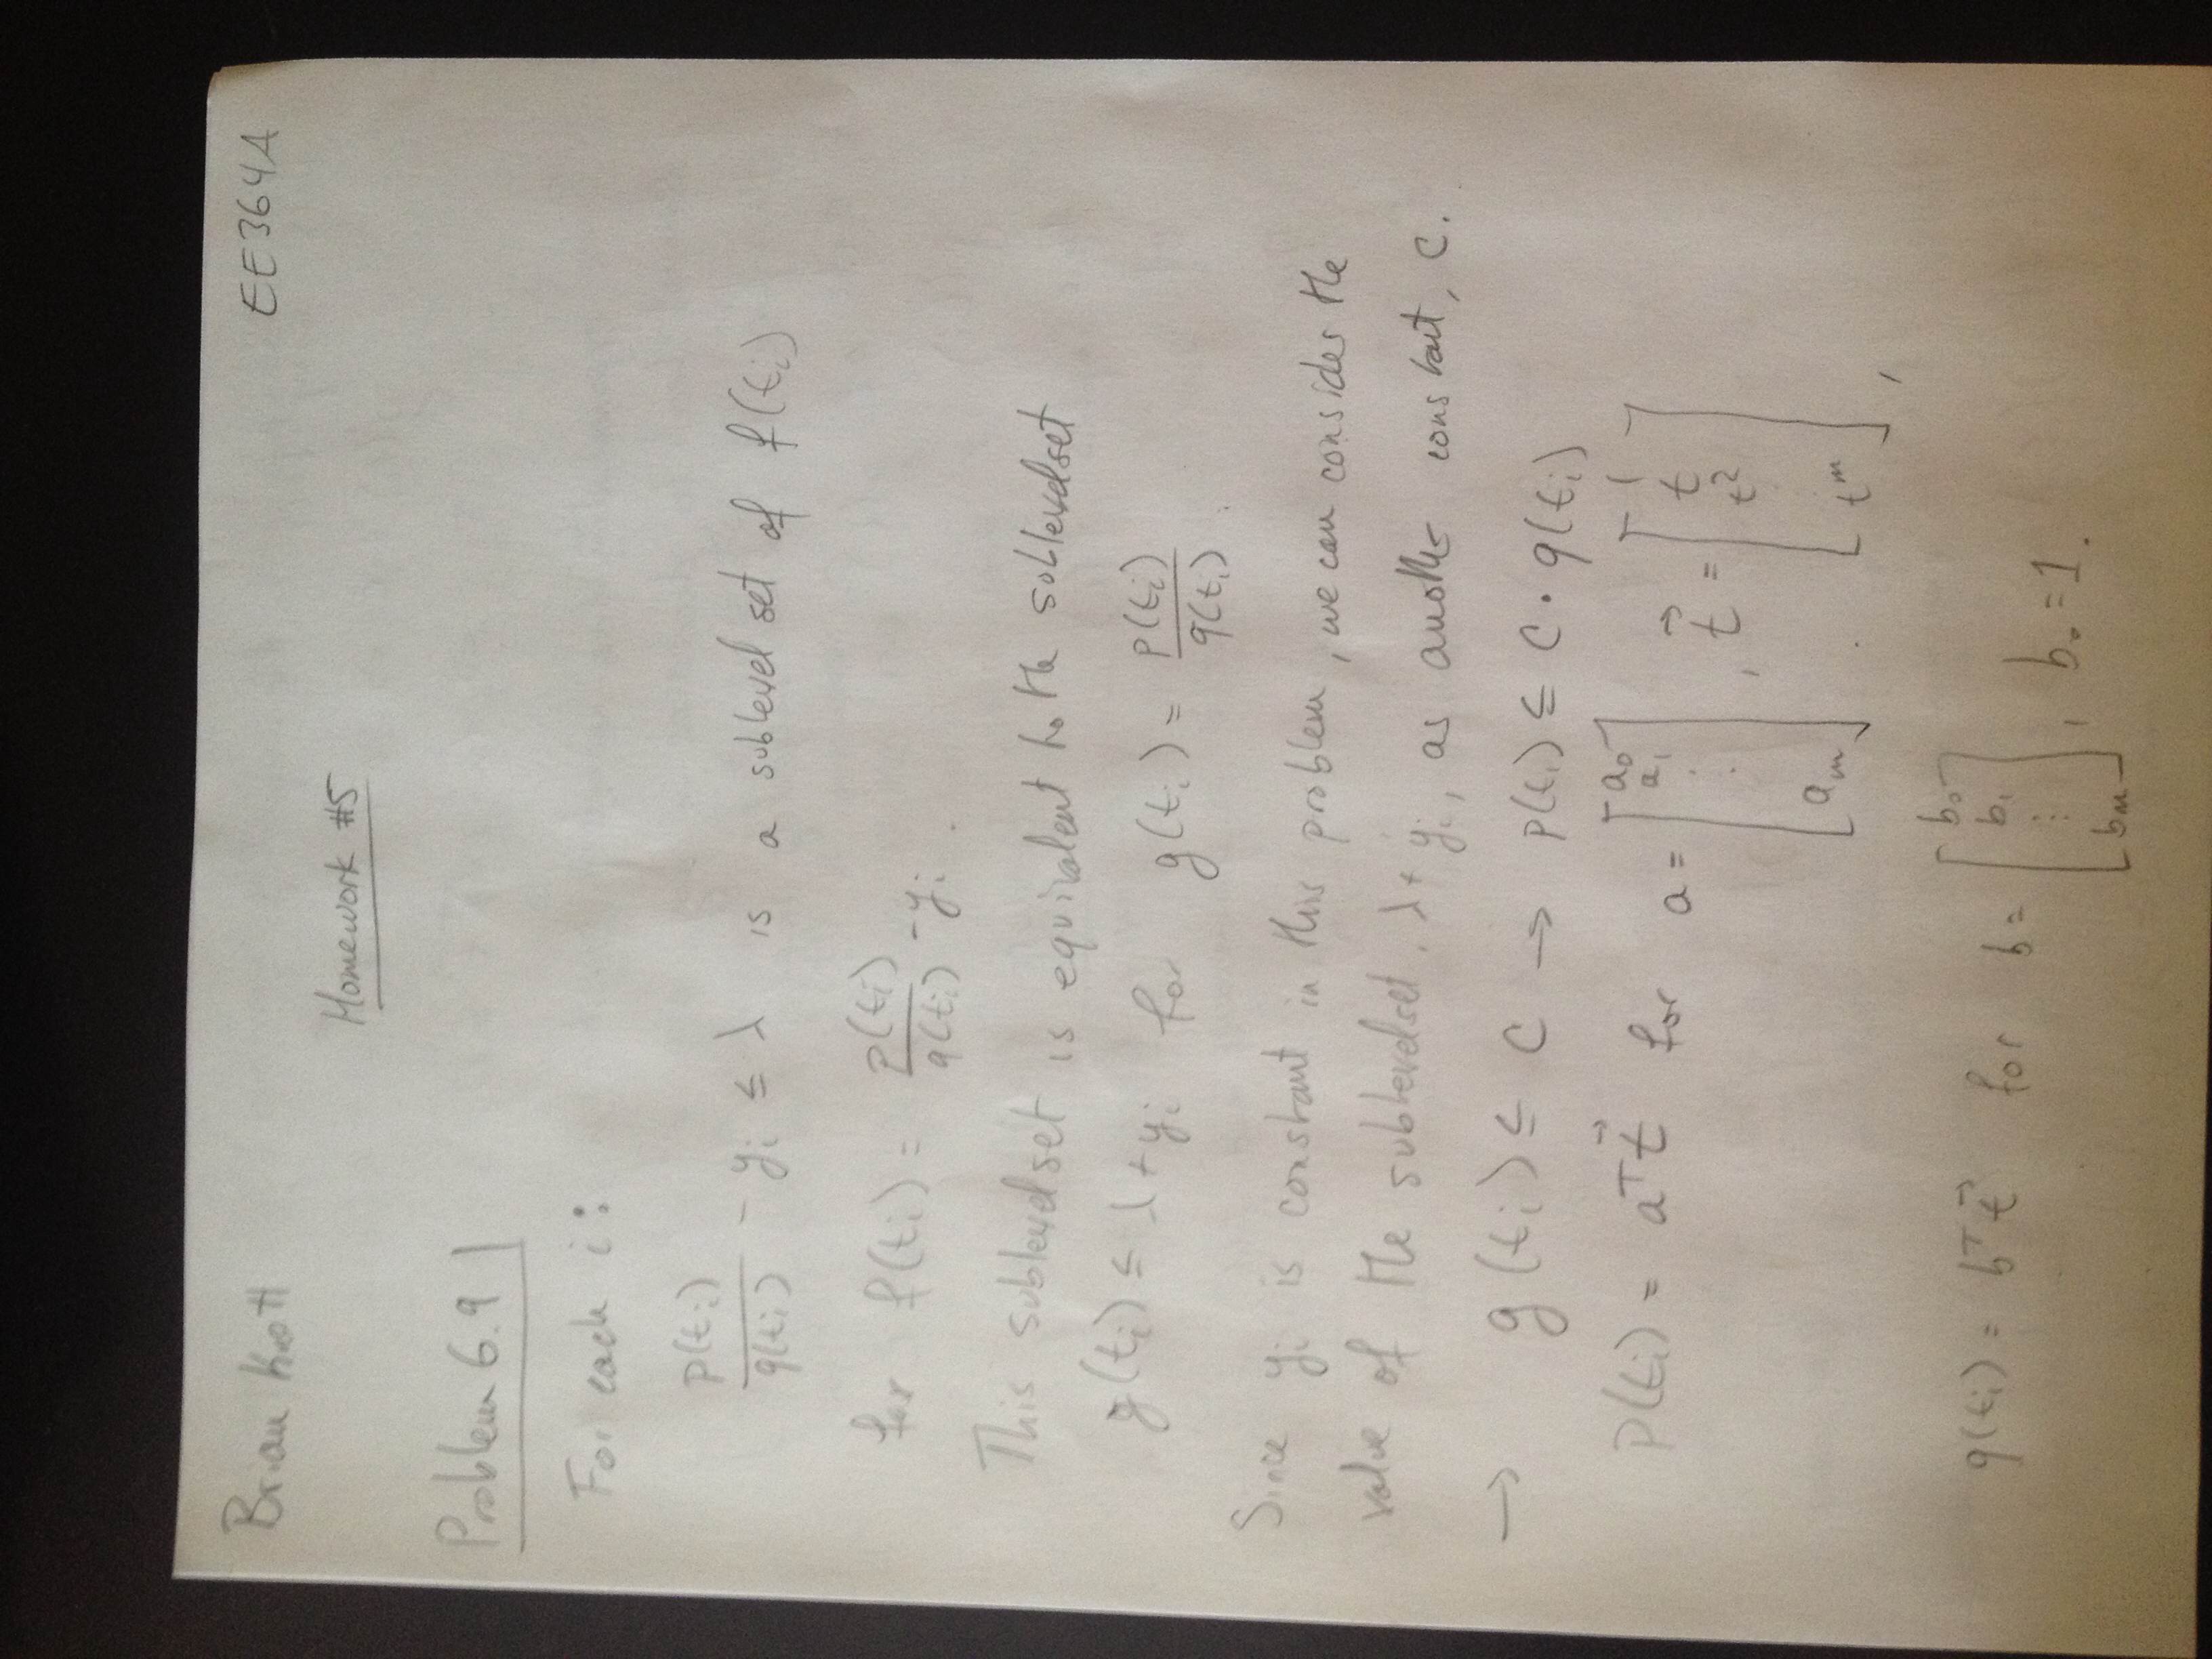 Brian Knott
EE364A
Homework #5
Problem 6.9
For each i:
p(tᵢ)/q(tᵢ) - yᵢ ≤ λ is a sublevel set of f(tᵢ)
for f(tᵢ) = p(tᵢ)/q(tᵢ) - yᵢ.
This sublevelset is equivalent to the sublevelset
g(tᵢ) ≤ λ + yᵢ for g(tᵢ) = p(tᵢ)/q(tᵢ).
Since yᵢ is constant in this problem, we can consider the
value of the sublevelset, λ + yᵢ, as another constant, C.
→ g(tᵢ) ≤ C → p(tᵢ) ≤ C · q(tᵢ)
P(tᵢ) = aᵀt⃗ for a = [a₀ a₁ . . aₘ], t⃗ = [1 t t² ⋮ tᵐ],
q(tᵢ) = bᵀt⃗ for b = [b₀ b₁ ⋮ bₘ], b₀ = 1.